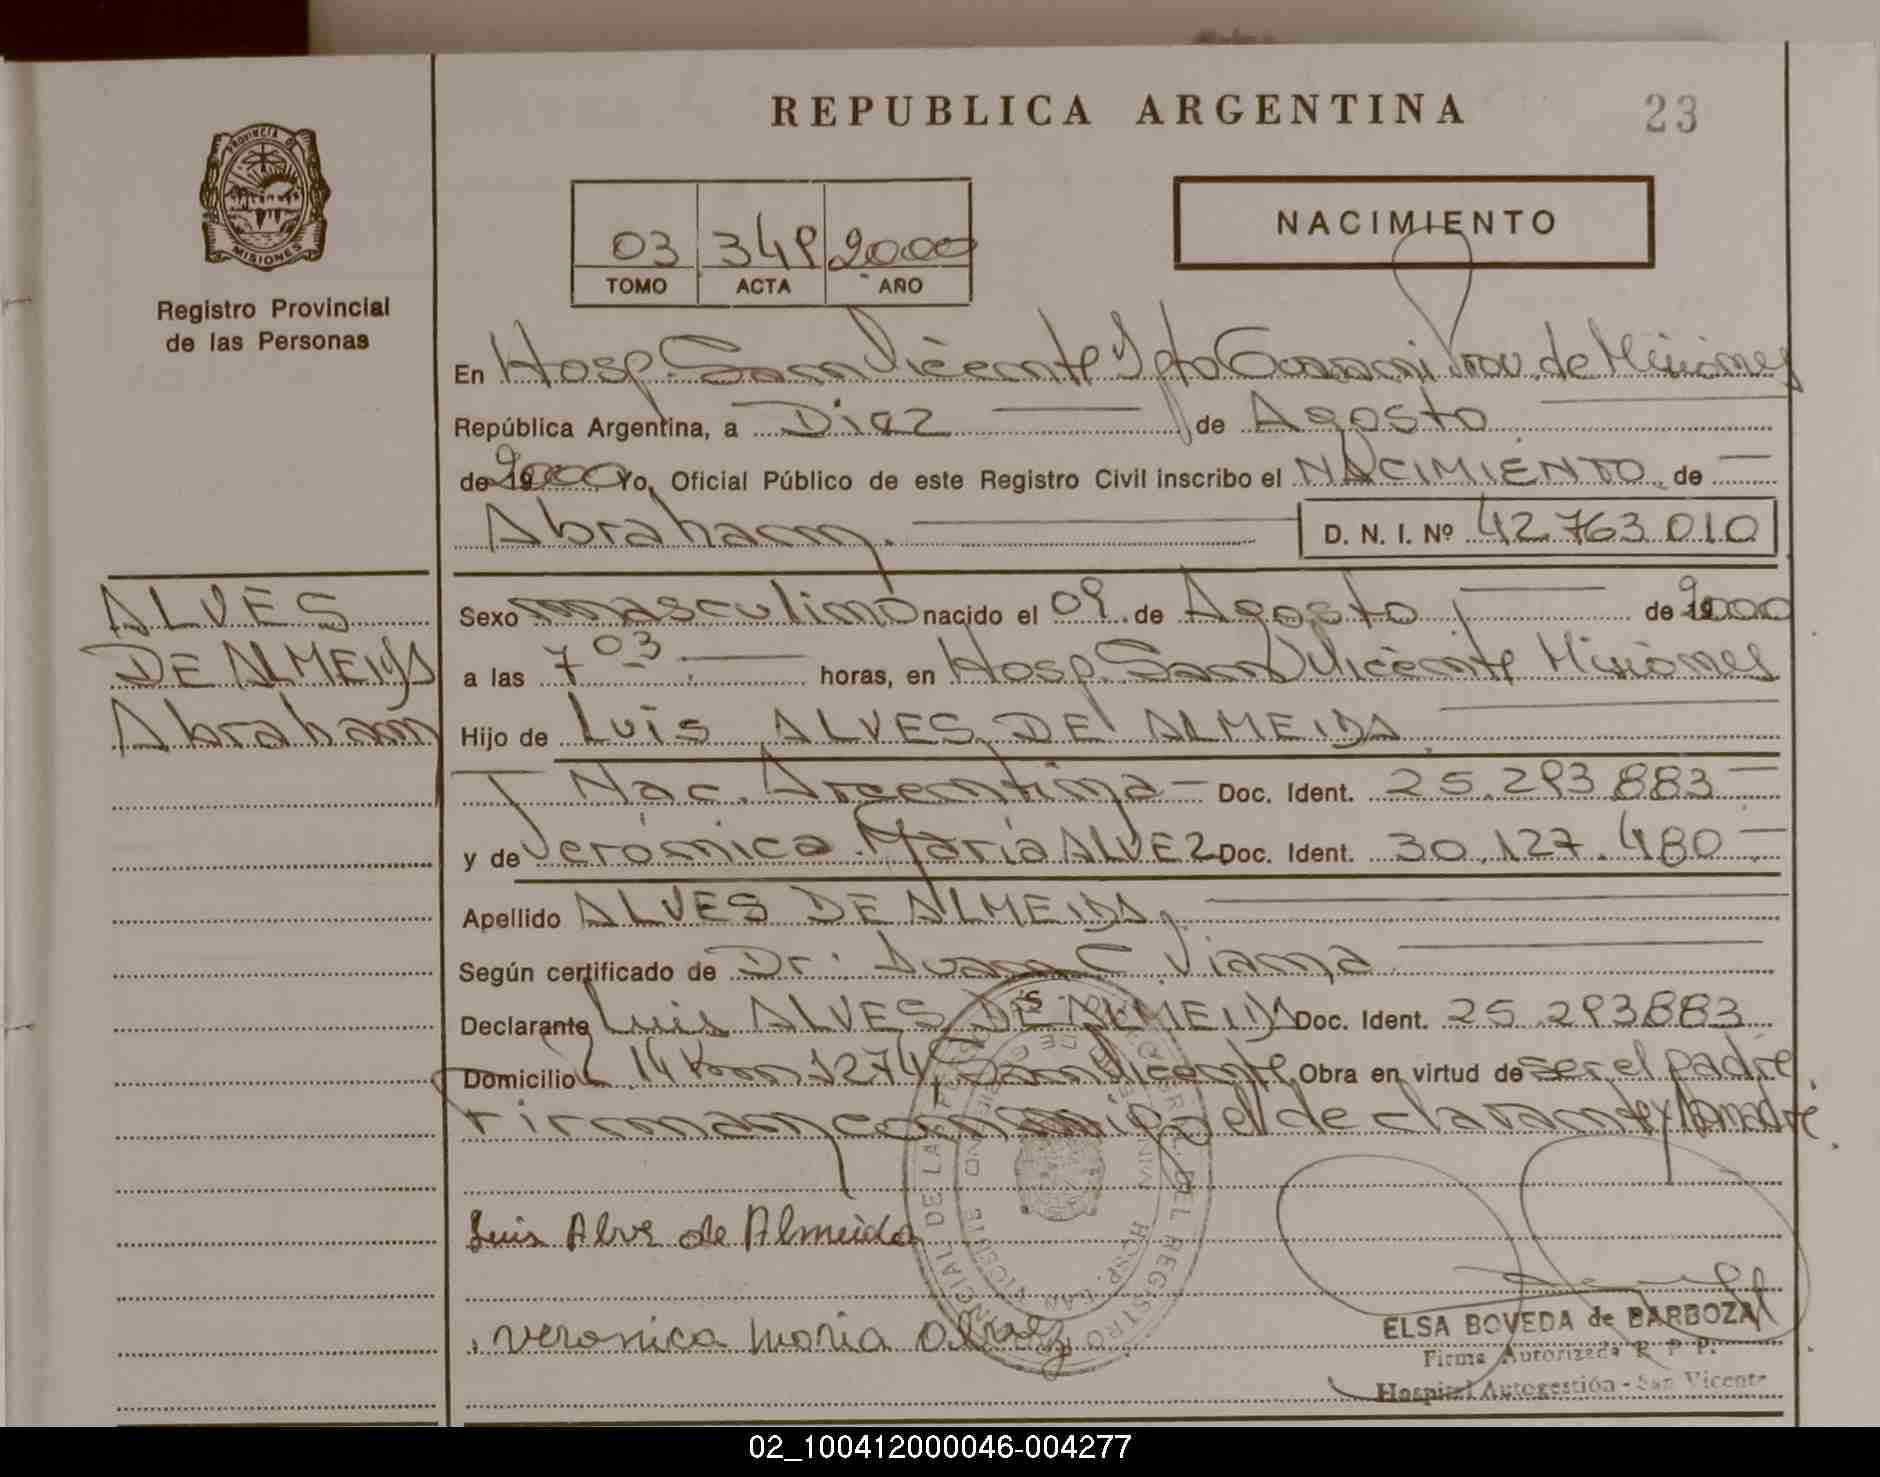 REPUBLICA ARGENTINA
23
PROVINCIA DE
MISIONES
Registro Provincial
de las Personas
03 349 2000
TOMO ACTA AÑO
NACIMIENTO
En Hosp. San Vicente Dpto Guarani Prov. de Misiones
República Argentina, a Diez de Agosto
de 2000 Yo, Oficial Público de este Registro Civil inscribo el NACIMIENTO de
Abraham. D. N. I. Nº 42.763.010
ALVES
DE ALMEIDA
Abraham
Sexo masculino nacido el 09 de Agosto de 2000
a las 7 03 horas, en Hosp. San Vicente Misiones
Hijo de Luis ALVES DE ALMEIDA
Nac. Argentina Doc. Ident. 25.293.883
y de Verónica María ALVEZ Doc. Ident. 30.127.480
Apellido ALVES DE ALMEIDA
Según certificado de Dr. Juan C. Viana
Declarante Luis ALVES DE ALMEIDA Doc. Ident. 25.293883
Domicilio L 14 Km 1274, San Vicente Obra en virtud de ser el padre
Firman conmigo el declarante y la madre.
Luis Alves de Almeida
Veronica Maria Alvez
HOSP. SAN VICENTE
ELSA BOVEDA de BARBOZA
Firma Autorizada R. P. P.
Hospital Autogestión - San Vicente
02_100412000046-004277